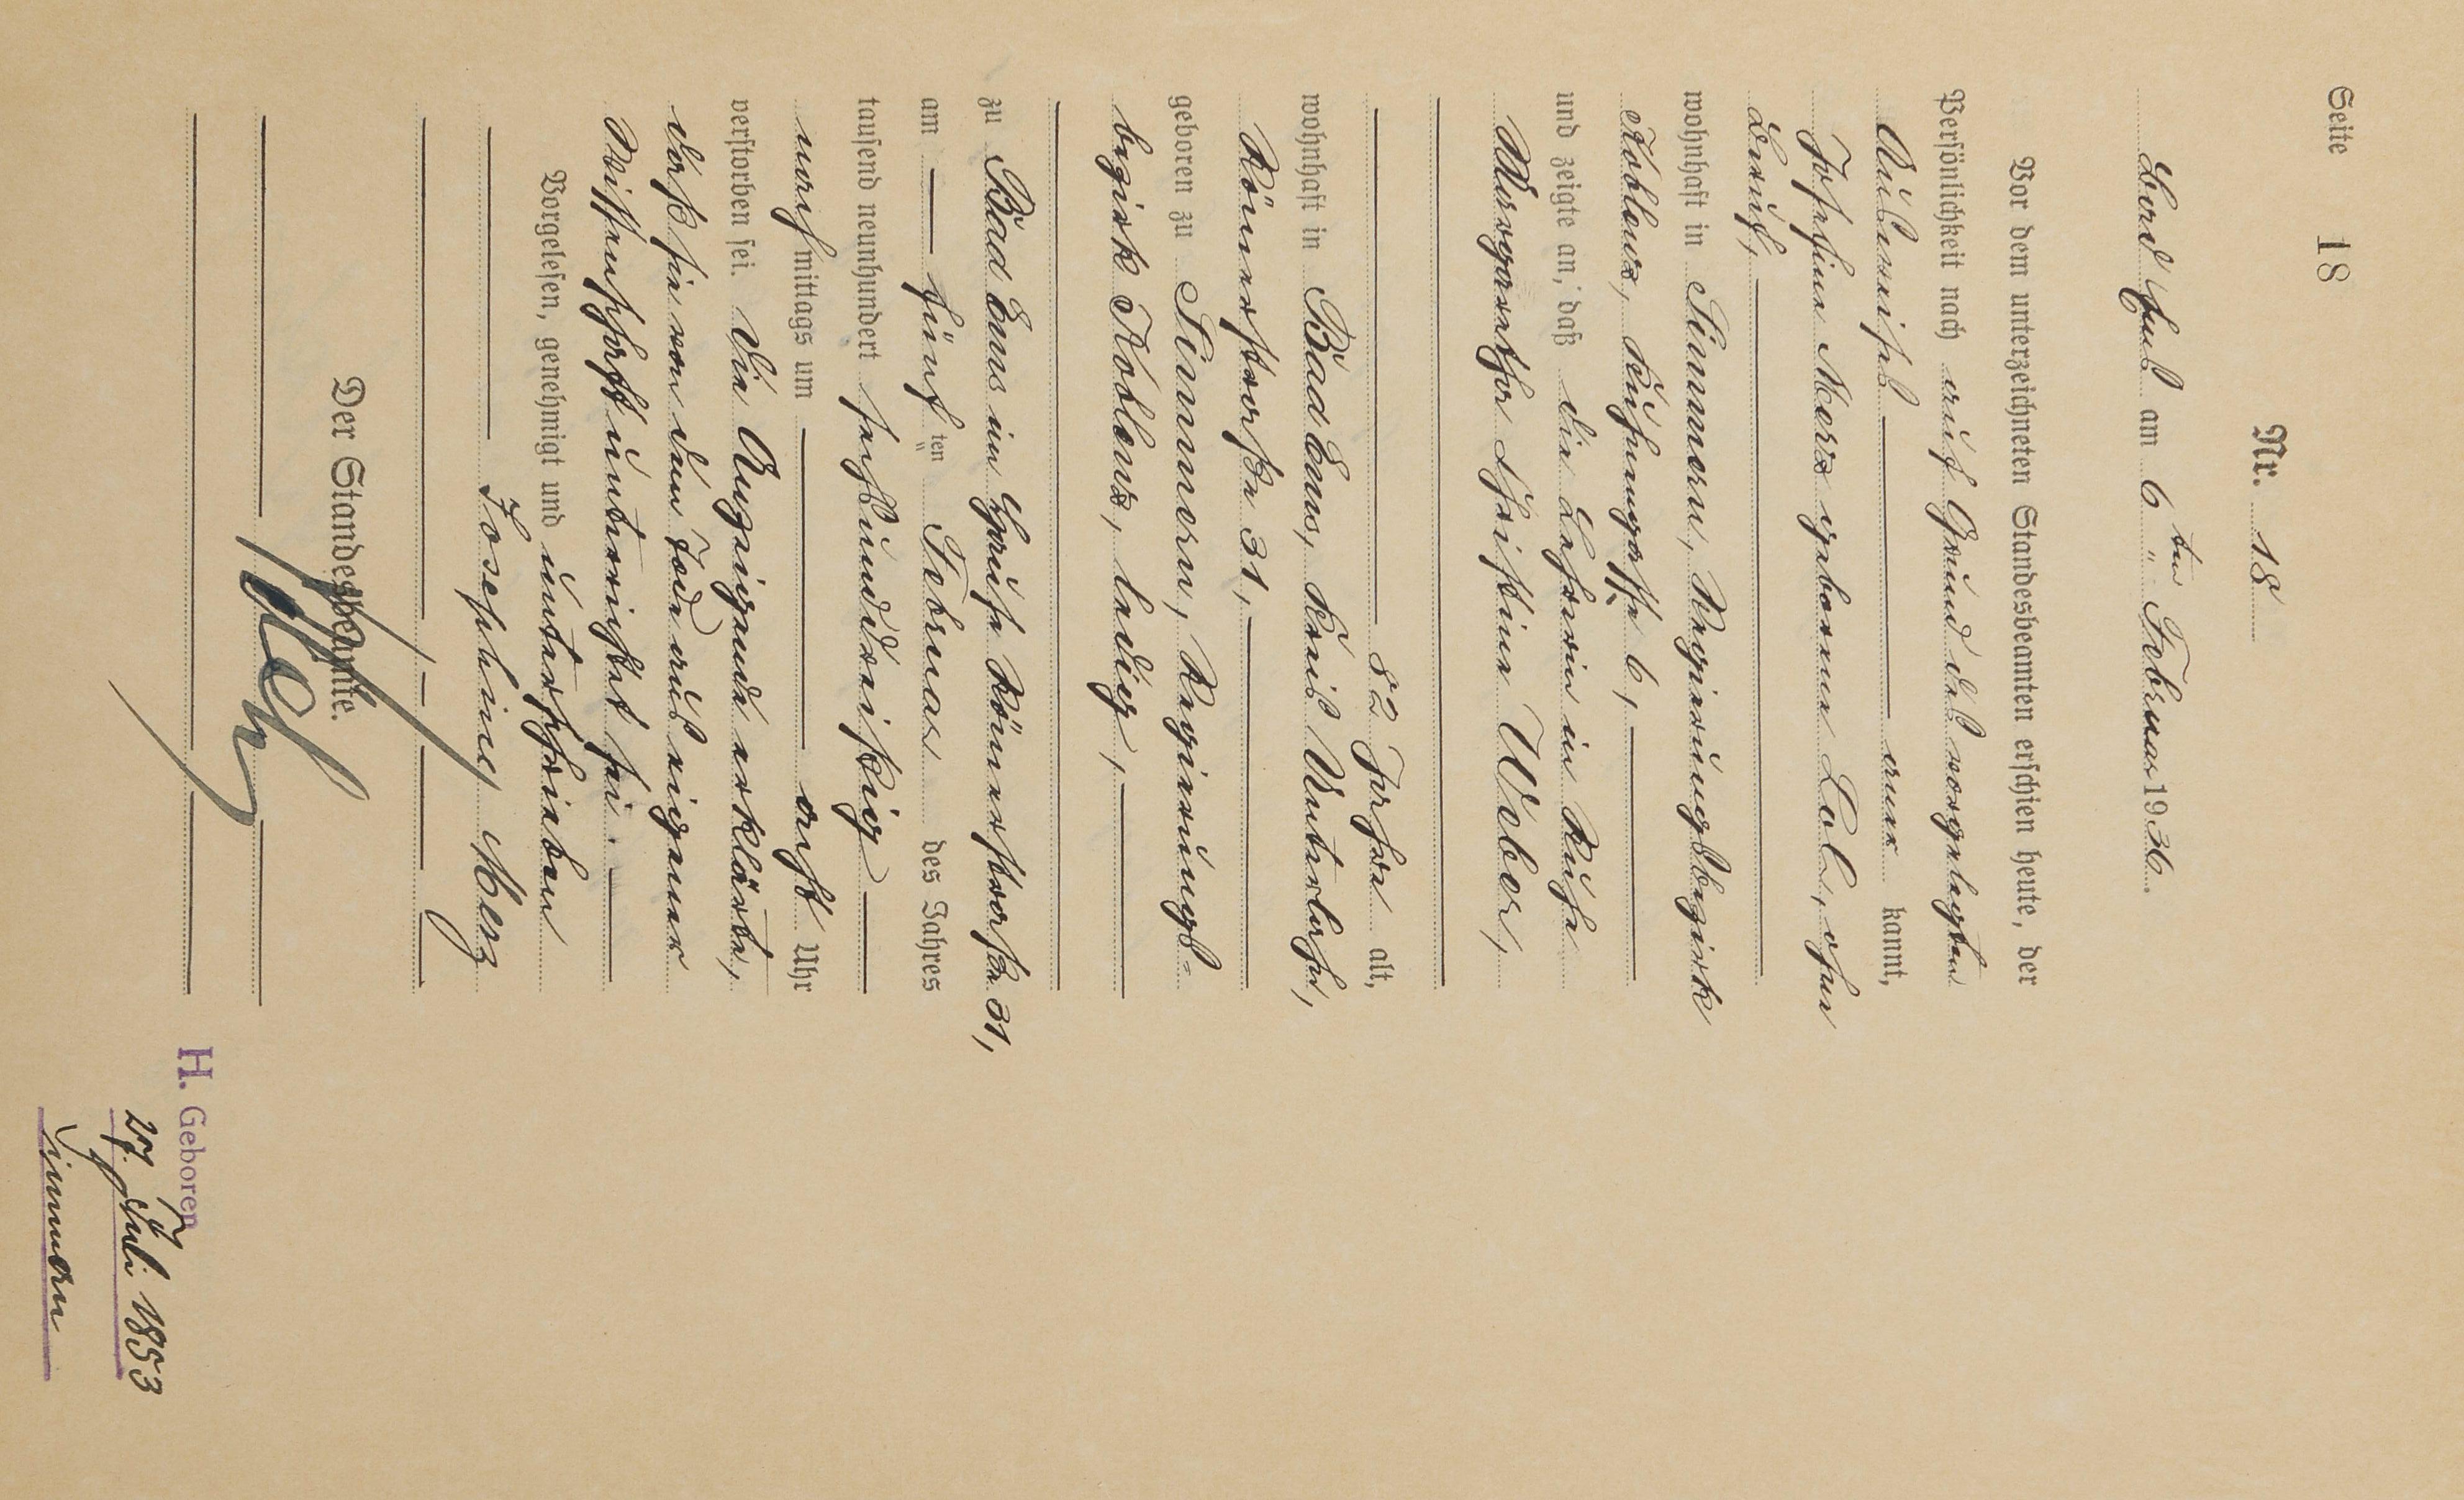 Seite 18
Nr. 18
Bad Ems am 6ten Februar 1936.
Vor dem unterzeichneten Standesbeamten erschien heute, der
Persönlichkeit nach auf Grund des vorgelegten
Ausweises aner kannt,
Josefine Merz geborene Lol, ohne
Beruf,
wohnhaft in Simmern, Regierungsbezirk
Koblenz, 6,
und zeigte an, daß die Lehrerin in Ruhe
Margarethe Christine Weber,
82 Jahre alt,
wohnhaft in Bad Ems, Kreis Unterlahn,
Römerstraße 31,
geboren zu Simmern, Regierungs-
bezirk Koblenz, ledig,
zu Bad Ems im Hause Römerstraße 31,
am fünften Februar des Jahres
tausend neunhundert sechsunddreißig
nachmittags um acht Uhr
verstorben sei. Die Anzeigende erklärte,
daß sie von dem Tode aus eigener
Wissenschaft unterrichtet sei.
Vorgelesen, genehmigt und unterschrieben
Josephine Merz
Der Standesbeamte.
H. Geboren
27. Juli 1853
Simmern